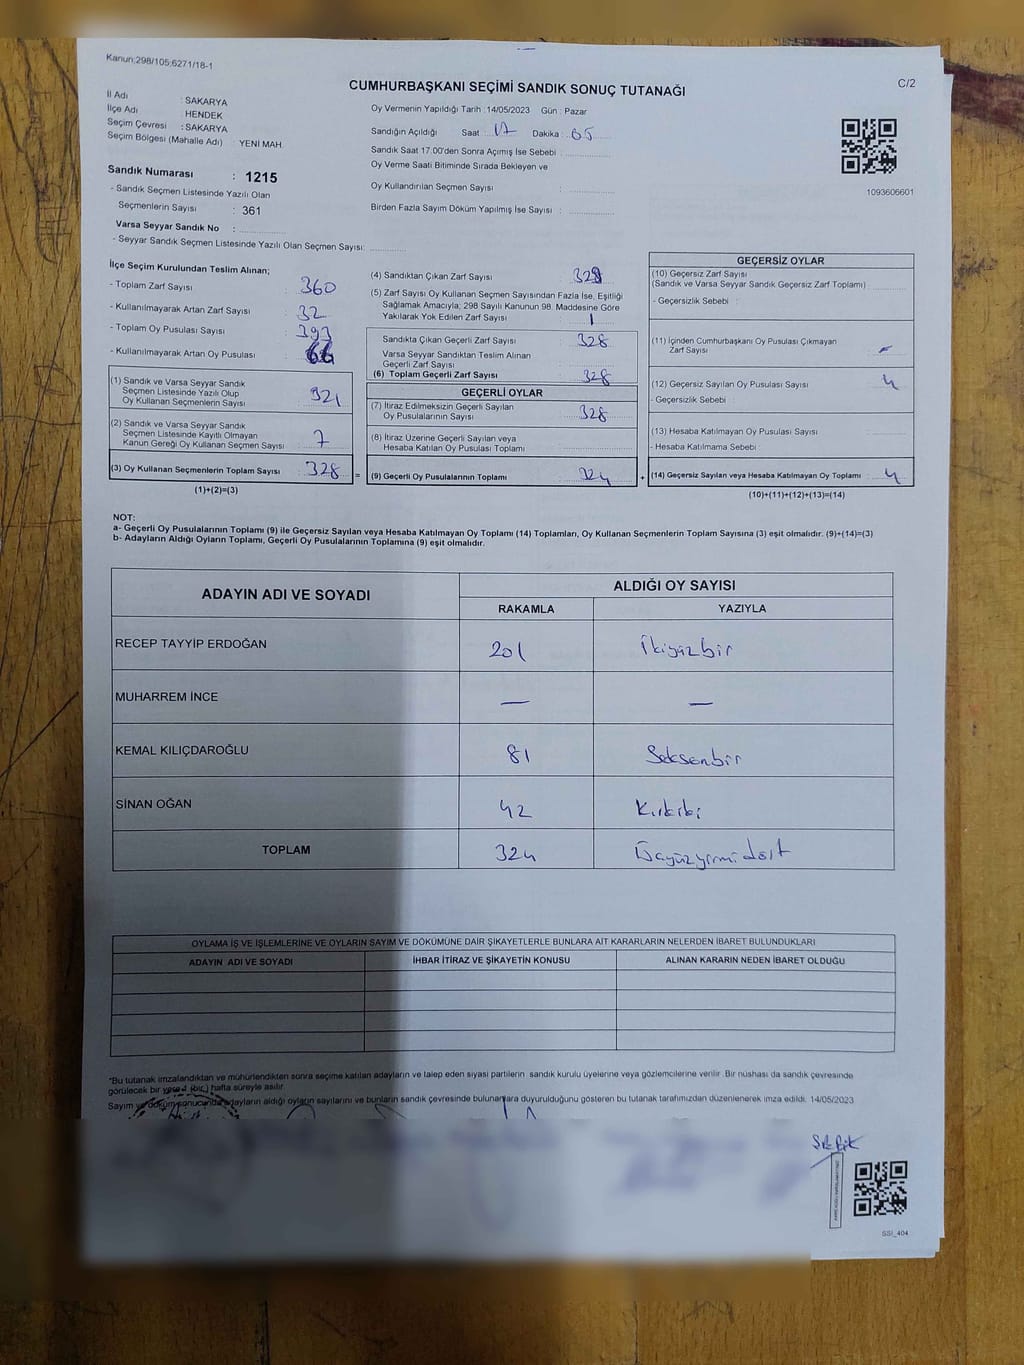 Kanun:298/105;6271/18-1
C/2
CUMHURBAŞKANI SEÇİMİ SANDIK SONUÇ TUTANAĞI
İl Adı : SAKARYA
İlçe Adı : HENDEK
Seçim Çevresi : SAKARYA
Seçim Bölgesi (Mahalle Adı) : YENİ MAH.
Sandık Numarası : 1215
- Sandık Seçmen Listesinde Yazılı Olan
Seçmenlerin Sayısı : 361
Varsa Seyyar Sandık No :
- Seyyar Sandık Seçmen Listesinde Yazılı Olan Seçmen Sayısı:
Oy Vermenin Yapıldığı Tarih :14/05/2023 Gün : Pazar
Sandığın Açıldığı Saat : 17 Dakika : 05
Sandık Saat 17:00'den Sonra Açımış İse Sebebi :
Oy Verme Saati Bitiminde Sırada Bekleyen ve
Oy Kullandırılan Seçmen Sayısı :
Birden Fazla Sayım Döküm Yapılmış İse Sayısı :
1093606601
İlçe Seçim Kurulundan Teslim Alınan;
- Toplam Zarf Sayısı : 360
- Kullanılmayarak Artan Zarf Sayısı : 32
- Toplam Oy Pusulası Sayısı : 393
- Kullanılmayarak Artan Oy Pusulası :
(1) Sandık ve Varsa Seyyar Sandık
Seçmen Listesinde Yazılı Olup
Oy Kullanan Seçmenlerin Sayısı : 321
(2) Sandık ve Varsa Seyyar Sandık
Seçmen Listesinde Kayıtlı Olmayan
Kanun Gereği Oy Kullanan Seçmen Sayısı : 7
(3) Oy Kullanan Seçmenlerin Toplam Sayısı : 328
(1)+(2)=(3)
(4) Sandıktan Çıkan Zarf Sayısı :
(5) Zarf Sayısı Oy Kullanan Seçmen Sayısından Fazla İse, Eşitliği
Sağlamak Amacıyla; 298 Sayılı Kanunun 98. Maddesine Göre
Yakılarak Yok Edilen Zarf Sayısı : 1
Sandıkta Çıkan Geçerli Zarf Sayısı : 328
Varsa Seyyar Sandıktan Teslim Alınan
Geçerli Zarf Sayısı :
(6) Toplam Geçerli Zarf Sayısı : 328
GEÇERLİ OYLAR
(7) İtiraz Edilmeksizin Geçerli Sayılan
Oy Pusulalarının Sayısı : 328
(8) İtiraz Üzerine Geçerli Sayılan veya
Hesaba Katılan Oy Pusulası Toplamı :
= (9) Geçerli Oy Pusulalarının Toplamı : 324
GEÇERSİZ OYLAR
(10) Geçersiz Zarf Sayısı
(Sandık ve Varsa Seyyar Sandık Geçersiz Zarf Toplamı) :
- Geçersizlik Sebebi :
(11) İçinden Cumhurbaşkanı Oy Pusulası Çıkmayan
Zarf Sayısı : -
(12) Geçersiz Sayılan Oy Pusulası Sayısı : 4
- Geçersizlik Sebebi :
(13) Hesaba Katılmayan Oy Pusulası Sayısı :
- Hesaba Katılmama Sebebi :
+ (14) Geçersiz Sayılan veya Hesaba Katılmayan Oy Toplamı : 4
(10)+(11)+(12)+(13)=(14)
NOT:
a- Geçerli Oy Pusulalarının Toplamı (9) ile Geçersiz Sayılan veya Hesaba Katılmayan Oy Toplamı (14) Toplamları, Oy Kullanan Seçmenlerin Toplam Sayısına (3) eşit olmalıdır. (9)+(14)=(3)
b- Adayların Aldığı Oyların Toplamı, Geçerli Oy Pusulalarının Toplamına (9) eşit olmalıdır.
ADAYIN ADI VE SOYADI ALDIĞI OY SAYISI
RAKAMLA YAZIYLA
RECEP TAYYİP ERDOĞAN 201 İkiyüzbir
MUHARREM İNCE — —
KEMAL KILIÇDAROĞLU 81 Seksenbir
SİNAN OĞAN 42 Kırkiki
TOPLAM 324 Üçyüzyirmidört
OYLAMA İŞ VE İŞLEMLERİNE VE OYLARIN SAYIM VE DÖKÜMÜNE DAİR ŞİKAYETLERLE BUNLARA AİT KARARLARIN NELERDEN İBARET BULUNDUKLARI
ADAYIN ADI VE SOYADI İHBAR İTİRAZ VE ŞİKAYETİN KONUSU ALINAN KARARIN NEDEN İBARET OLDUĞU
*Bu tutanak imzalandıktan ve mühürlendikten sonra seçime katılan adayların ve talep eden siyasi partilerin sandık kurulu üyelerine veya gözlemcilerine verilir. Bir nüshası da sandık çevresinde
görülecek bir yere 1 (bir) hafta süreyle asılır.
Sayım ve döküm sonucunda adayların aldığı oyların sayılarını ve bunların sandık çevresinde bulunanlara duyurulduğunu gösteren bu tutanak tarafımızdan düzenlenerek imza edildi. 14/05/2023
SSI_404